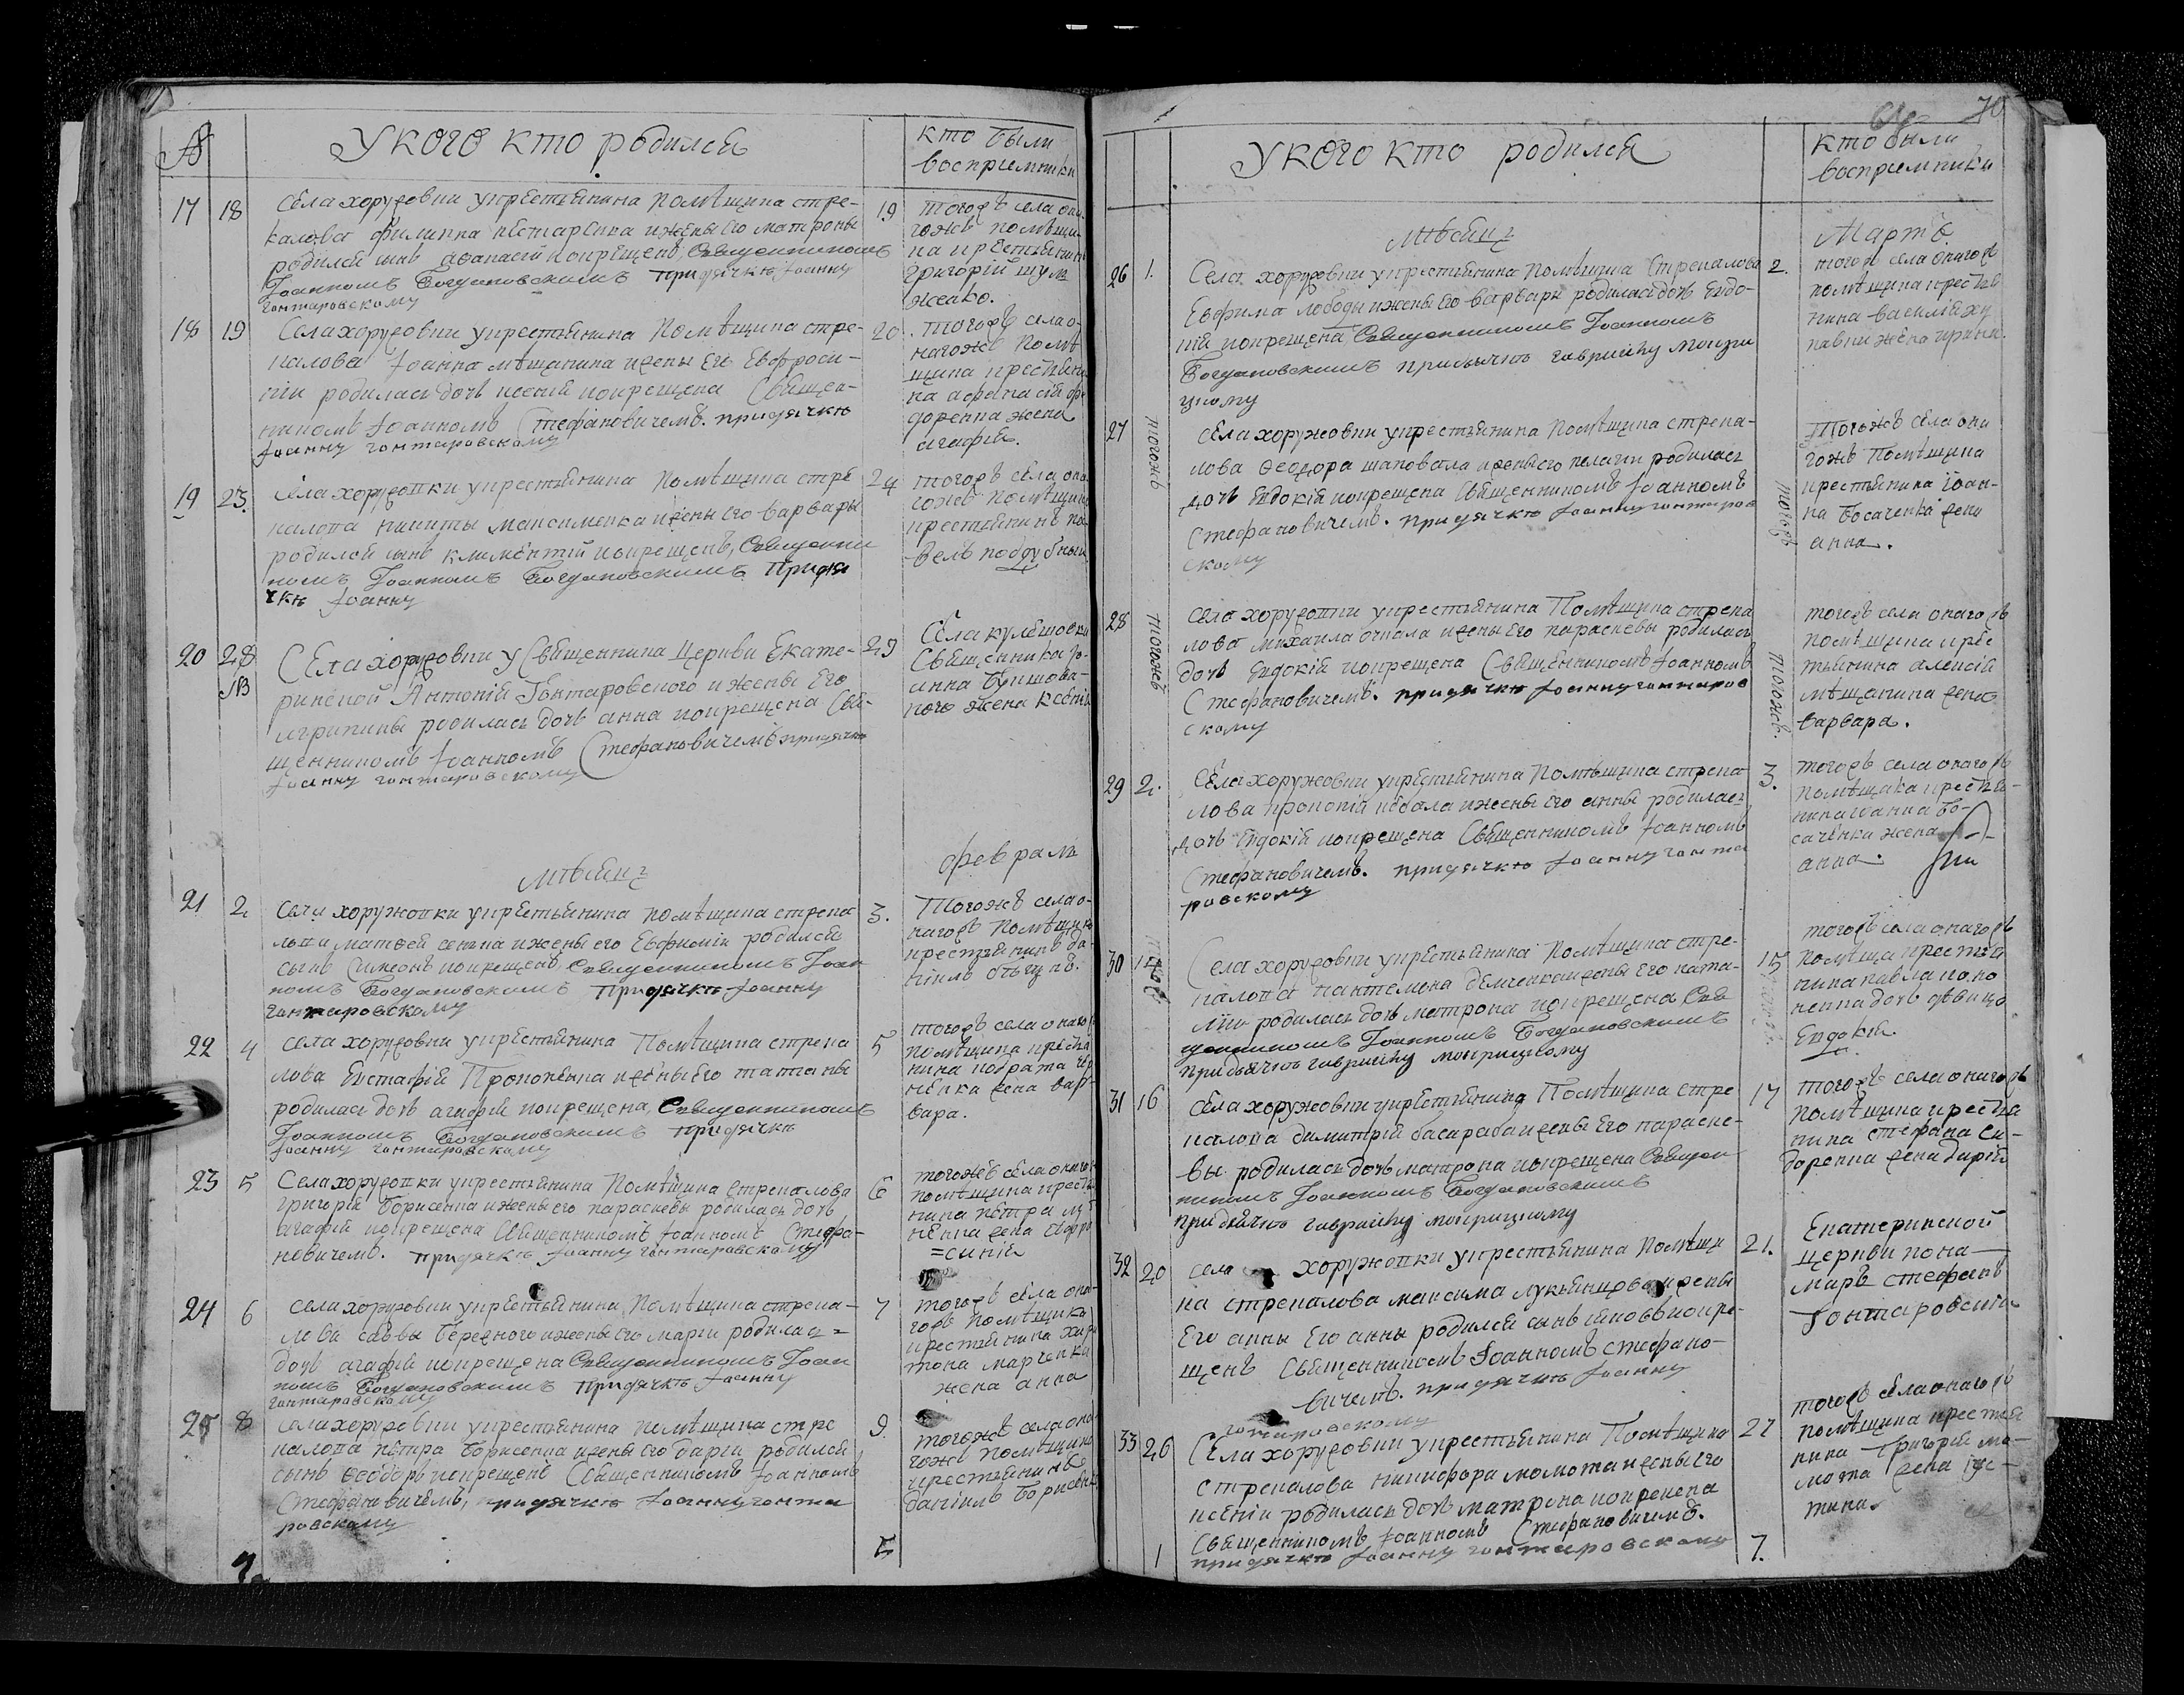 №
У КОГО КТО родился
Кто были
восприемники
17 18 Села хоружовки у крестьянина помѣщика Стре-
калова Филиппа нестаренка и жены его матроны
родился сынъ Афанасий и окрещенъ, Священникомъ
Іоанномъ Богдановскимъ При дячкѣ Іоанну
Гонтаровскому
19 тогожъ села она-
гожъ помѣщи-
ка крестьянинъ
Григорій шул
жекво.
18 19 Села хоружовки у крестьянина помѣщика Стре-
калова Іоанна мѣщанина и жены Его Евфроси-
ніи родилась дочь ксенія и окрещена Священ-
никомъ Іоанномъ Стефановичемъ. при дячкѣ
Іоанну гонтаровскому
20. тогожъ села о-
нагожъ помѣ-
щика крестьяни-
на афанасій фе-
доренка жена
агафія.
19 23. Села хоружовки у крестьянина помѣщика Стре-
калова никиты максименка и жены его варвары
родился сынъ климентій и окрещенъ, Священни
комъ Іоанномъ Богдановскимъ При дя
чкѣ Іоанну
24 тогожъ села она-
гожъ помѣщика
крестьянинъ па-
велъ поддубный
20 28 Села хоружовки у Священника Церкви Екате-
рининской Антоній Гонтаровского и жены Его
агрипины родилась дочь анна и окрещена Свя-
щенникомъ Іоанномъ Стефановичемъ при дячкѣ
Іоанну гонтаровскому
29 Села кулешовки
Священника Іо-
анна
жена ксенія
Мѣсяцъ
февраль
21 2 Села хоружовки у крестьянина помѣщика стрека
лова матвей и жены его Евфимии родился
сынъ Симеонъ и окрещенъ, Священникомъ Іоан
номъ Богдановскимъ При дячкѣ Іоанну
гонтаровскому
3. Тогожъ села о-
нагожъ помѣщика
крестьянинъ да-
ніилъ
22 4 Села хоружовки у крестьянина Помѣщика стрека
лова Евстафій Прокопенка и жены Его татианы
родилась дочь агафія и окрещена, Священникомъ
Іоанномъ Богдановскимъ При дячкѣ
Іоанну гонтаровскому
5 тогожъ села онаго
помѣщика крестья
нина
жена вар-
вара.
23 5 Села хоружовки у крестьянина Помѣщика Стрекалова
Григорій Борисенка и жены его параскевы родилась дочь
агафія и окрещена Священникомъ Іоанномъ Стефа-
новичемъ. При дячкѣ Іоанну гонтаровскому
6 тогожъ села онагожъ
помѣщика крестья
нина петра
жена Евфро
=синія
24 6 Села хоружовки у крестьянина Помѣщика стрека-
лова саввы бережного и жены его марии родилась
дочь агафія и окрещена Священникомъ Іоан
номъ Богдановскимъ При дячкѣ Іоанну
гонтаровскому
7 тогожъ села она-
гожъ помѣщика
крестьянина хари
тона марченка
жена анна
25 8 Села хоружовки у крестьянина помѣщика стре
калова петра борисенка и жены его дарии родился
сынъ Феодоръ и окрещенъ Священникомъ Іоанномъ
Стефановичемъ, при дячкѣ Іоанну гонта
ровскому
9. тогожъ села она-
гожъ помѣщика
крестьянинъ
даніилъ борисенко
7. 5
70
У КОГО КТО родился
Кто были
восприемники
Мѣсяцъ
Мартъ.
26 1. Села хоружовки у крестьянина помѣщика Стрекалова
Евфима лободы и жены Его варвары родилась дочь Евдо-
кія и окрещена Священникомъ Іоанномъ
Богдановскимъ при дьячкѣ гавриилу мокри
цкому
2. тогожъ села онагожъ
помѣщика крестья
нина василія ку
жена ирина.
27 тогожъ Села хоружовки у крестьянина помѣщика стрека-
лова Феодора шаповала и жены его пелагии родилась
дочь Евдокія и окрещена Священникомъ Іоанномъ
Стефановичемъ. при дячкѣ Іоанну гонтаров
скому
тогожъ Тогожъ села она
гожъ Помѣщика
крестьянина іоан-
на босаченка жена
анна.
28 тогожъ Села хоружовки у крестьянина Помѣщика стрека
лова михаила очкала и жены Его параскевы родилась
дочь Евдокія и окрещена Священникомъ Іоанномъ
Стефановичемъ. при дячкѣ Іоанну гонтаров
скому
тогожъ. тогожъ села онагожъ
помѣщика крес
тьянина алексія
мѣщанина жена
варвара.
29 2. Села хоружовки у крестьянина помѣщика стрека
лова прокопія и жены его анны родилась
дочь Евдокія и окрещена Священникомъ Іоанномъ
Стефановичемъ. при дячкѣ Іоанну гонта
ровскому
3. тогожъ села онагожъ
помѣщика крестья-
нина іоанна бо-
саченка жена
анна.
30 Села хоружовки у крестьянина Помѣщика стре-
калова пантемона демченка и жены Его ната-
лии родилась дочь матрона и окрещена Свя
щенникомъ Іоанномъ Богдановскимъ
при дьячкѣ гавриилу мокрицкому
15 тогожъ села онагожъ
помѣщи крестья
нина павла коно
ненка дочь дѣвица
Евдокія.
31 16 Села хоружовки у крестьянина Помѣщика стре
калова димитрій басараба и жены Его параске-
вы родилась дочь матрона и окрещена Священ
никомъ Іоанномъ Богдановскимъ
при дьячкѣ гавриилу мокрицкому
17 тогожъ села онагожъ
помѣщика крестья
нина стефана Си-
доренка жена дарія
32 20 Села хоружовки у крестьянина помѣщи
ка стрекалова максима лукьянцова и жены
Его анны Его анны родился сынъ и окре-
щенъ Священникомъ Іоанномъ Стефано-
вичемъ. при дячкѣ Іоанну
гонтаровскому
21. Екатеринской
церкви пона-
марь стефанъ
Гонтаровскій
33 26 Села хоружовки у крестьянина Помѣщика
стрекалова никифора момота и жены его
ксении родилась дочь матрона и окрещена
Священникомъ Іоанномъ Стефановичемъ.
при дячкѣ Іоанну гонтаровскому
27 тогожъ села онагожъ
помѣщика крестья
нина Григорій мо-
мота жена іус-
тина.
1 7.